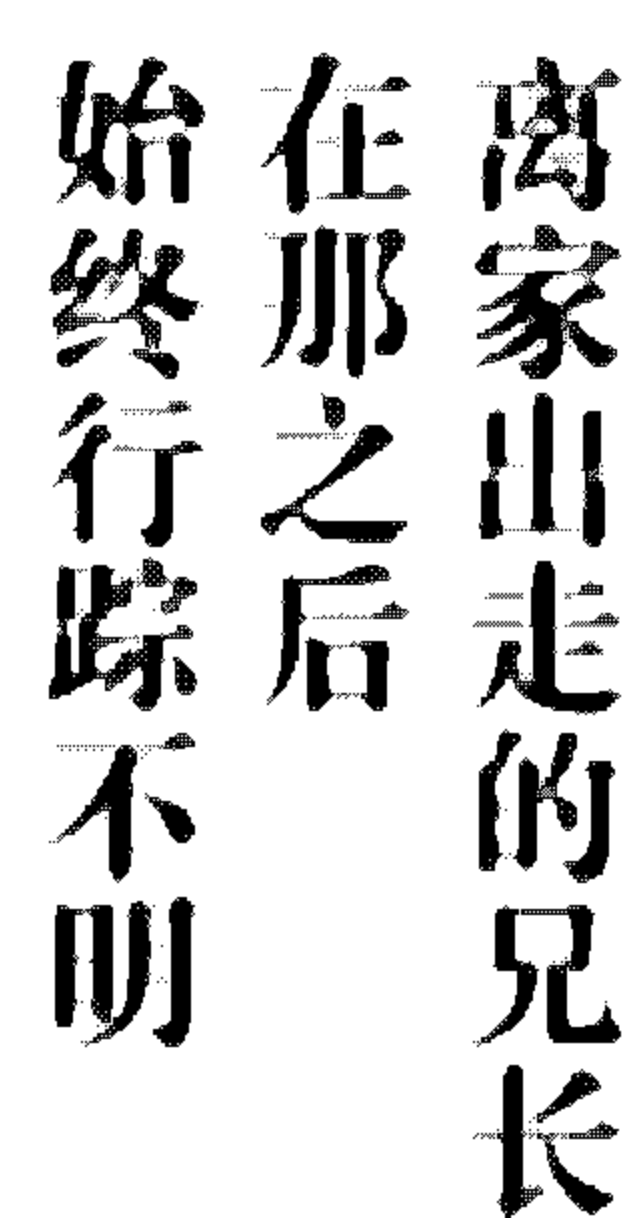 离家出走的兄长
在那之后
始终行踪不明